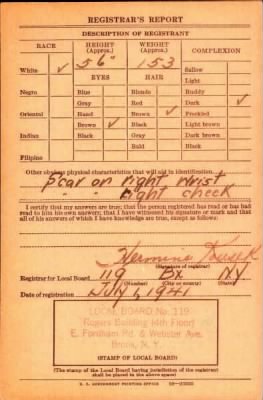 REGISTRAR'S REPORT
DESCRIPTION OF REGISTRANT
RACE HEIGHT (Approx.) WEIGHT (Approx.) COMPLEXION
White ✓ 5'6" 153 Sallow
EYES HAIR Light
Negro Blue Blonde Ruddy
Gray Red Dark ✓
Oriental Hazel Brown ✓ Freckled
Brown ✓ Black Light brown
Indian Black Gray Dark brown
Bald Black
Filipino
Other obvious physical characteristics that will aid in identification
Scar on right wrist
" " right cheek
I certify that my answers are true; that the person registered has read or has had
read to him his own answers; that I have witnessed his signature or mark and that
all of his answers of which I have knowledge are true, except as follows:
Hermine
(Signature of registrar)
Registrar for Local Board 119 Bx NY
(Number) (City or county) (State)
Date of registration July 1, 1941
LOCAL BOARD No. 119
Rogers Building (4th Floor)
E. Fordham Rd. & Webster Ave.
Bronx, N. Y.
(STAMP OF LOCAL BOARD)
(The stamp of the Local Board having jurisdiction of the registrant
shall be placed in the above space.)
U. S. GOVERNMENT PRINTING OFFICE